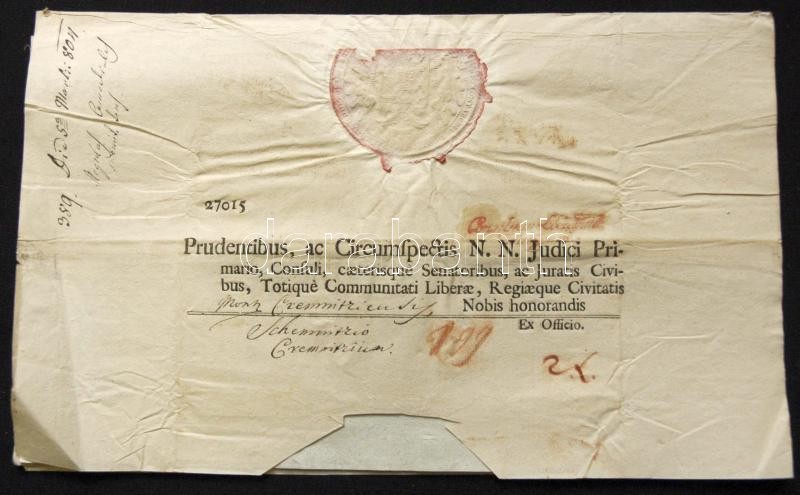 389. Die 5a Martii 804.
27015
Prudentibus, ac Circumſpectis N. N. Judici Pri-
mario, Conſuli, cæterisque Senatoribus, ac Juratis Civi-
bus, Totiquè Communitati Liberæ, Regiæque Civitatis
Mont Cremnitziensis, Nobis honorandis
Ex Officio.
Schemnitzio
Cremnitzium.
darabanth